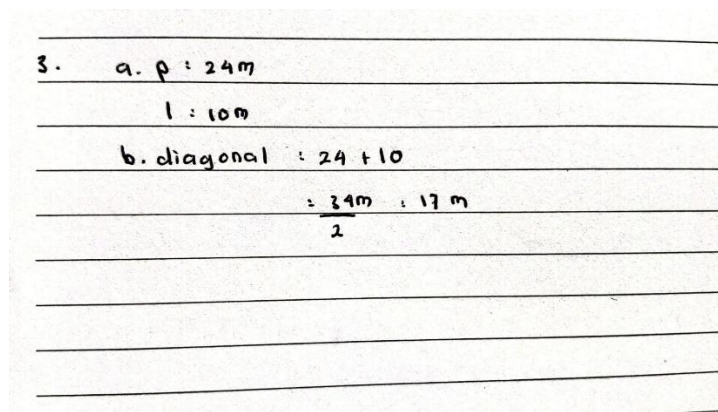 3. a. p : 24m
l : 10m
b. diagonal : 24 + 10
: 34m : 17 m
2